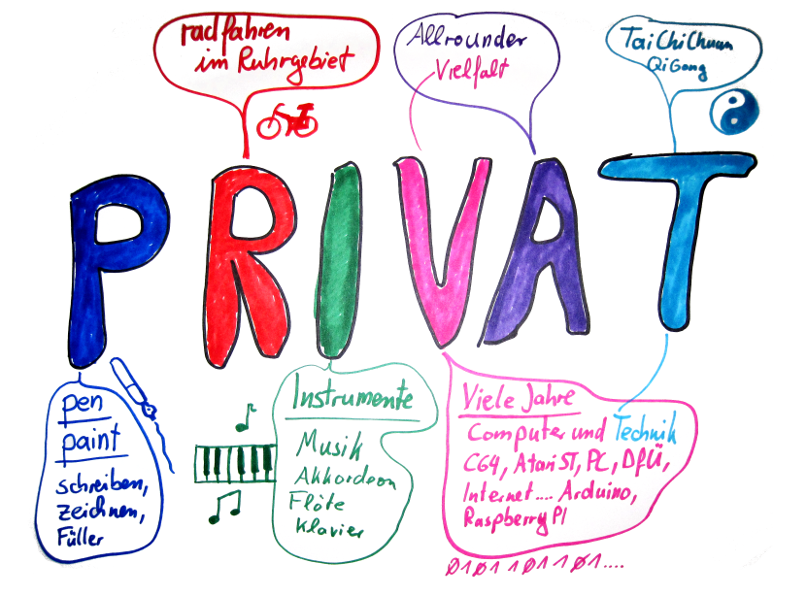 radfahren
im Ruhrgebiet
Allrounder
Vielfalt
TaiChiChuan
QiGong
PRIVAT
pen
paint
schreiben,
zeichnen,
Füller
Instrumente
Musik
Akkordeon
Flöte
Klavier
Viele Jahre
Computer und Technik
C64, Atari ST, PC, DFÜ,
Internet.... Arduino,
Raspberry PI
0101101101....